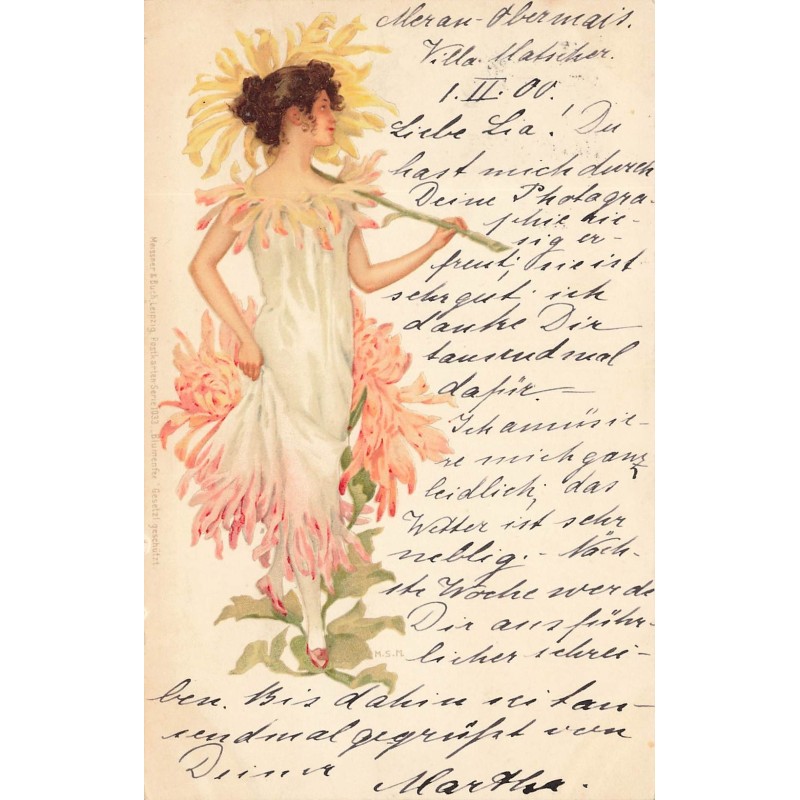 Meran-Obermais.
Villa Matscher.
1. II. 00.
Liebe Lia! Du
hast mich durch
Deine Photogra-
phie rie-
sig er-
freut, sie ist
sehr gut; ich
danke Dir
tausendmal
dafür. —
Ich amüsie-
re mich ganz
leidlich, das
Wetter ist sehr
neblig. - Näch-
ste Woche werde
Dir ausführ-
licher schrei-
ben. Bis dahin sei tau-
sendmal gegrüßt von
Deiner
Martha.
Meissner & Buch, Leipzig. Postkarten-Serie 1033 "Blumenfee" Gesetzl. geschützt
M.S.M.